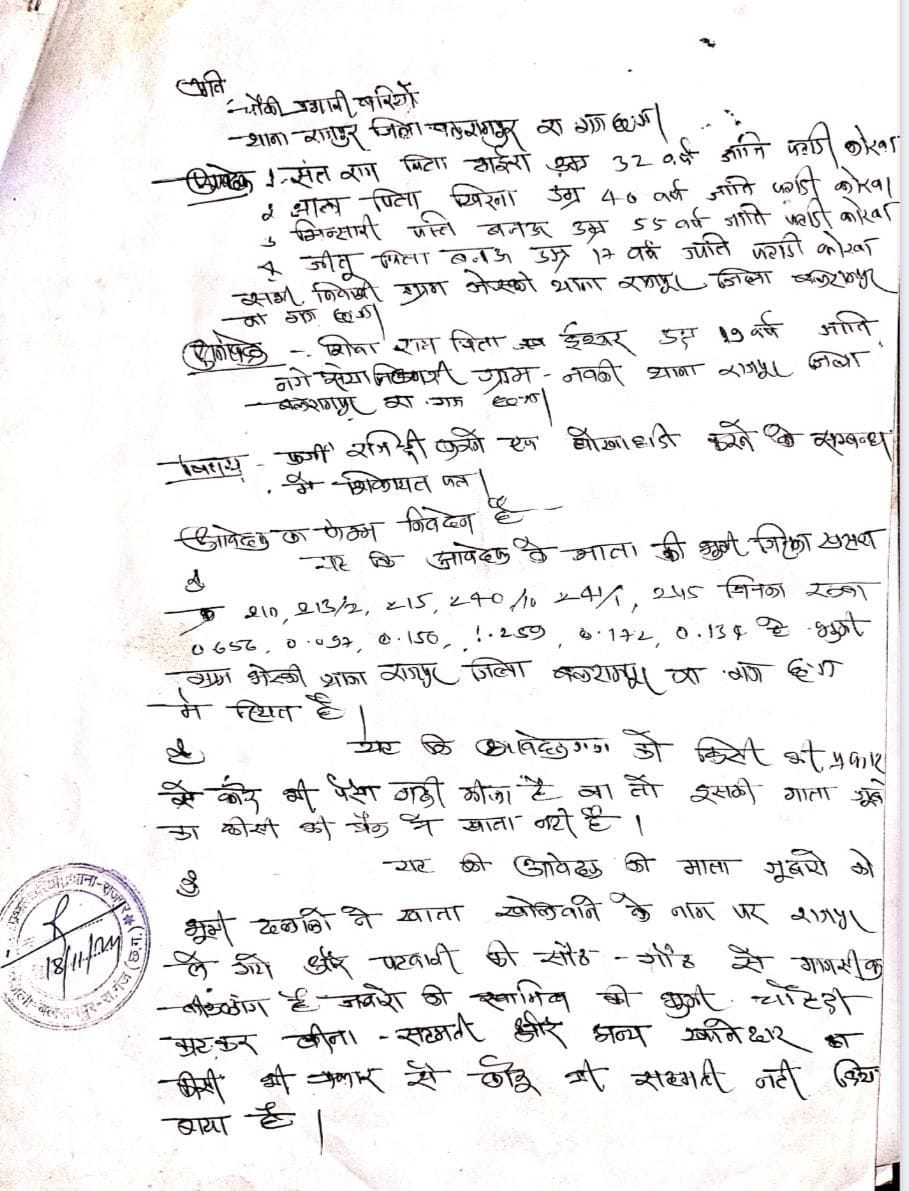 प्रति
चौकी प्रभारी बरियों
थाना राजपुर जिला बलरामपुर रा गंज छ०ग०
आवेदक 1- संत राम पिता उम्र 32 वर्ष जाति पहाड़ी कोरवा
2 पिता उम्र 40 वर्ष जाति पहाड़ी कोरवा
3 पति बनऊ उम्र 55 वर्ष जाति पहाड़ी कोरवा
4 जीतू पिता बनऊ उम्र 17 वर्ष जाति पहाड़ी कोरवा
सभी निवासी ग्राम भेस्की थाना राजपुर जिला बलरामपुर
रा गंज छ०ग०
अनावेदक - शिवा राम पिता ईश्वर उम्र 19 वर्ष जाति
ग्राम - नवकी थाना राजपुर जिला
बलरामपुर रा गंज छ०ग०
विषय - फर्जी रजिस्ट्री करने एवं धोखाधड़ी करने के सम्बन्ध
में शिकायत पत्र।
आवेदक का निवेदन है -
1 यह कि आवेदक के माता की भूमी जिसका खसरा
क्र 210, 213/2, 215, 240/10 241/1, 245 जिनका रकबा
0.656, 0.097, 0.150, 1.259, 0.172, 0.134 है भूमी
ग्राम भेस्की थाना राजपुर जिला बलरामपुर रा गंज छ०ग
में स्थित है।
2 यह कि आवेदकगण को किसी भी प्रकार
से कोई भी पैसा नही है ना तो इसकी माता
का कीसी भी बैंक में खाता नही है।
3 यह की आवेदक की माता को
भूमी दलालो ने खाता खोलवाने के नाम पर राजपुर
ले गये और पटवारी की सांठ - गांठ से
है की स्वामित्व की भूमी चौहद्दी
बीना - सहमती और अन्य खातेदार का
किसी भी प्रकार से कोई भी सहमती नही लिया
गया है।
18/11/24